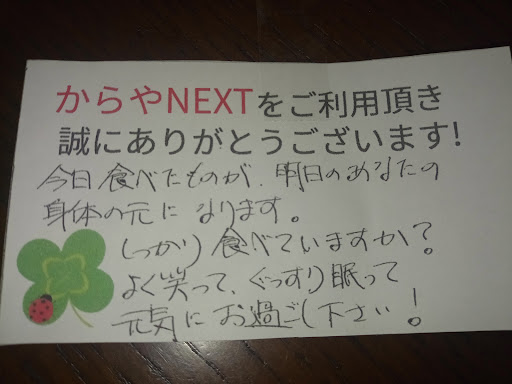 からやNEXTをご利用頂き
誠にありがとうございます!
今日食べたものが、明日のあなたの
身体の元になります。
しっかり食べていますか?
よく笑って、ぐっすり眠って
元気にお過ごし下さい!